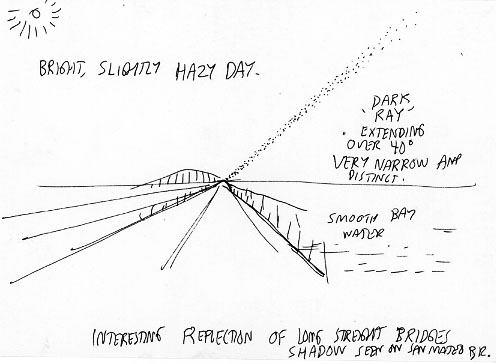 BRIGHT, SLIGHTLY HAZY DAY.
DARK
'RAY'
EXTENDING
OVER 40°
VERY NARROW AND
DISTINCT.
SMOOTH BAY
WATER
INTERESTING REFLECTION OF LONG STREIGHT BRIDGES
SHADOW SEEN ON SAN MATEO BR.